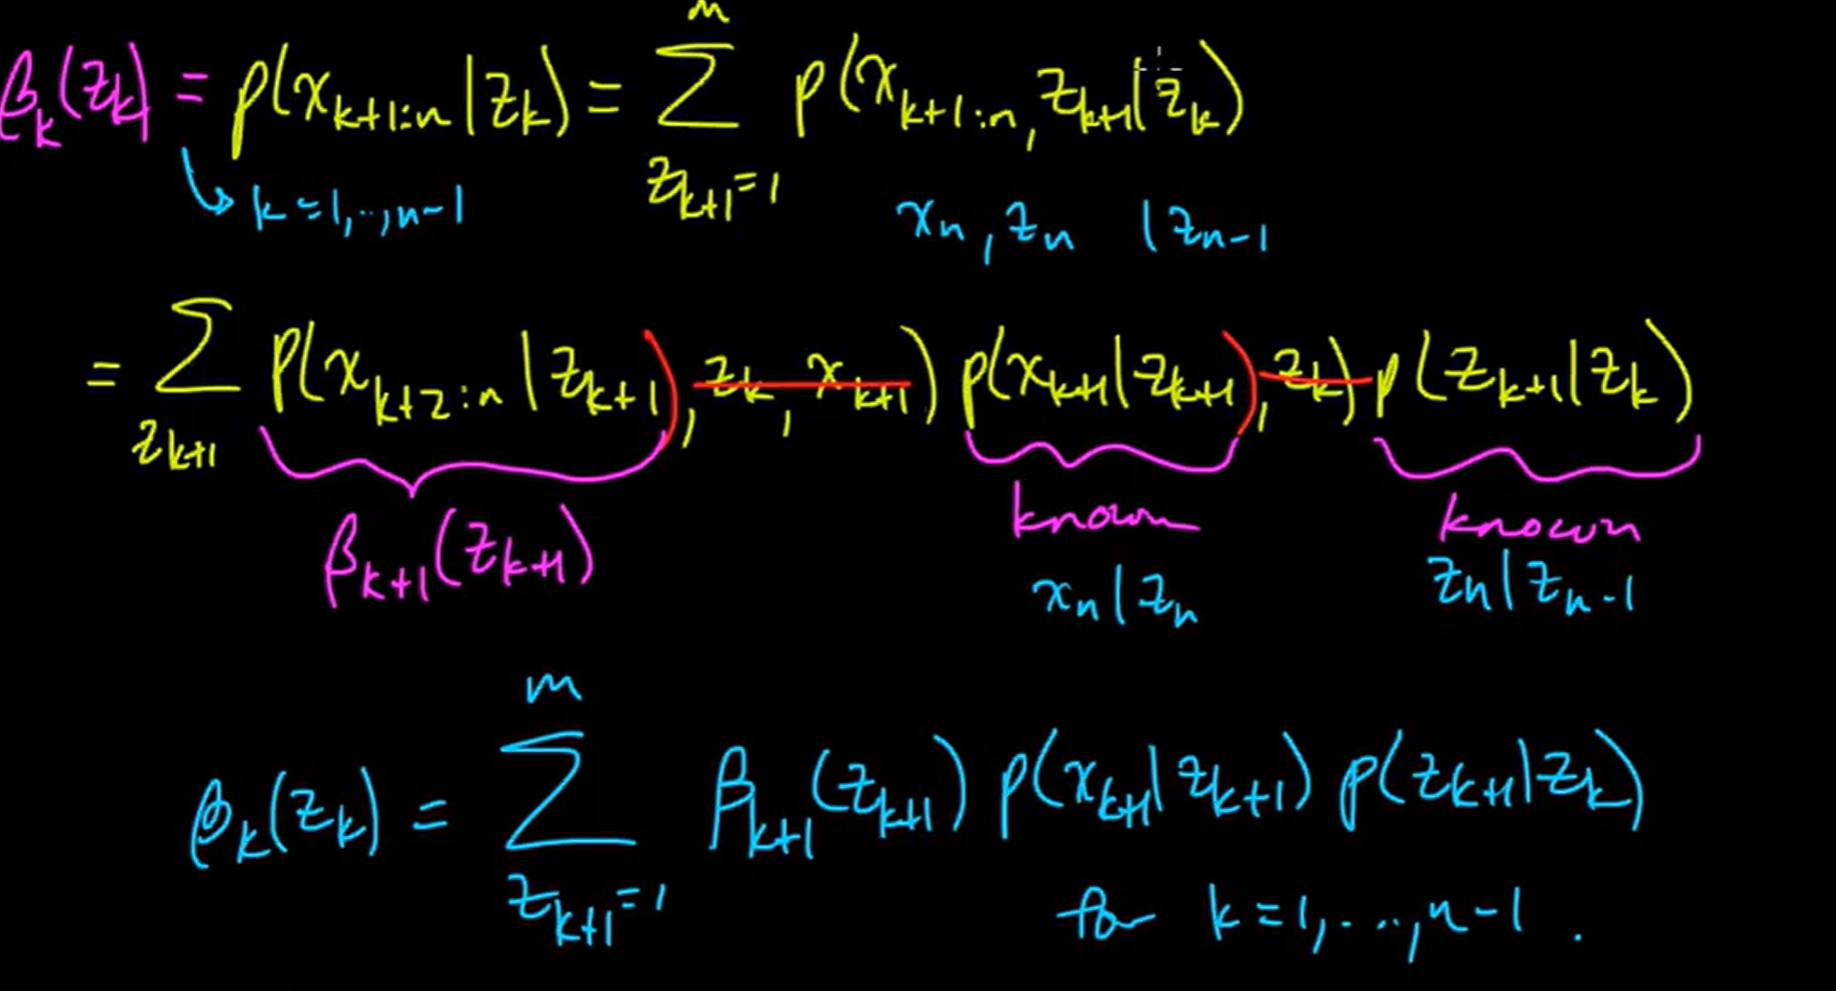 β_k(z_k) = p(x_{k+1:n} | z_k) = ∑_{z_{k+1}=1}^{m} p(x_{k+1:n}, z_{k+1} | z_k)
↳ k = 1, .., n-1
x_n, z_n | z_{n-1}
= ∑_{z_{k+1}} p(x_{k+2:n} | z_{k+1}), z_k, x_{k+1}) p(x_{k+1} | z_{k+1}), z_k) p(z_{k+1} | z_k)
β_{k+1}(z_{k+1})
known known
x_n | z_n z_n | z_{n-1}
β_k(z_k) = ∑_{z_{k+1}=1}^{m} β_{k+1}(z_{k+1}) p(x_{k+1} | z_{k+1}) p(z_{k+1} | z_k)
for k = 1, ..., n-1.